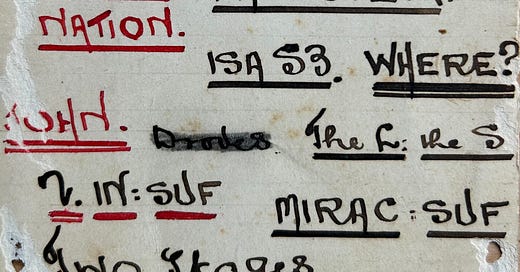 NATION.
ISA 53. WHERE?
JOHN. The L: the S
2. IN: SUF
MIRAC: SUF
Two Stages